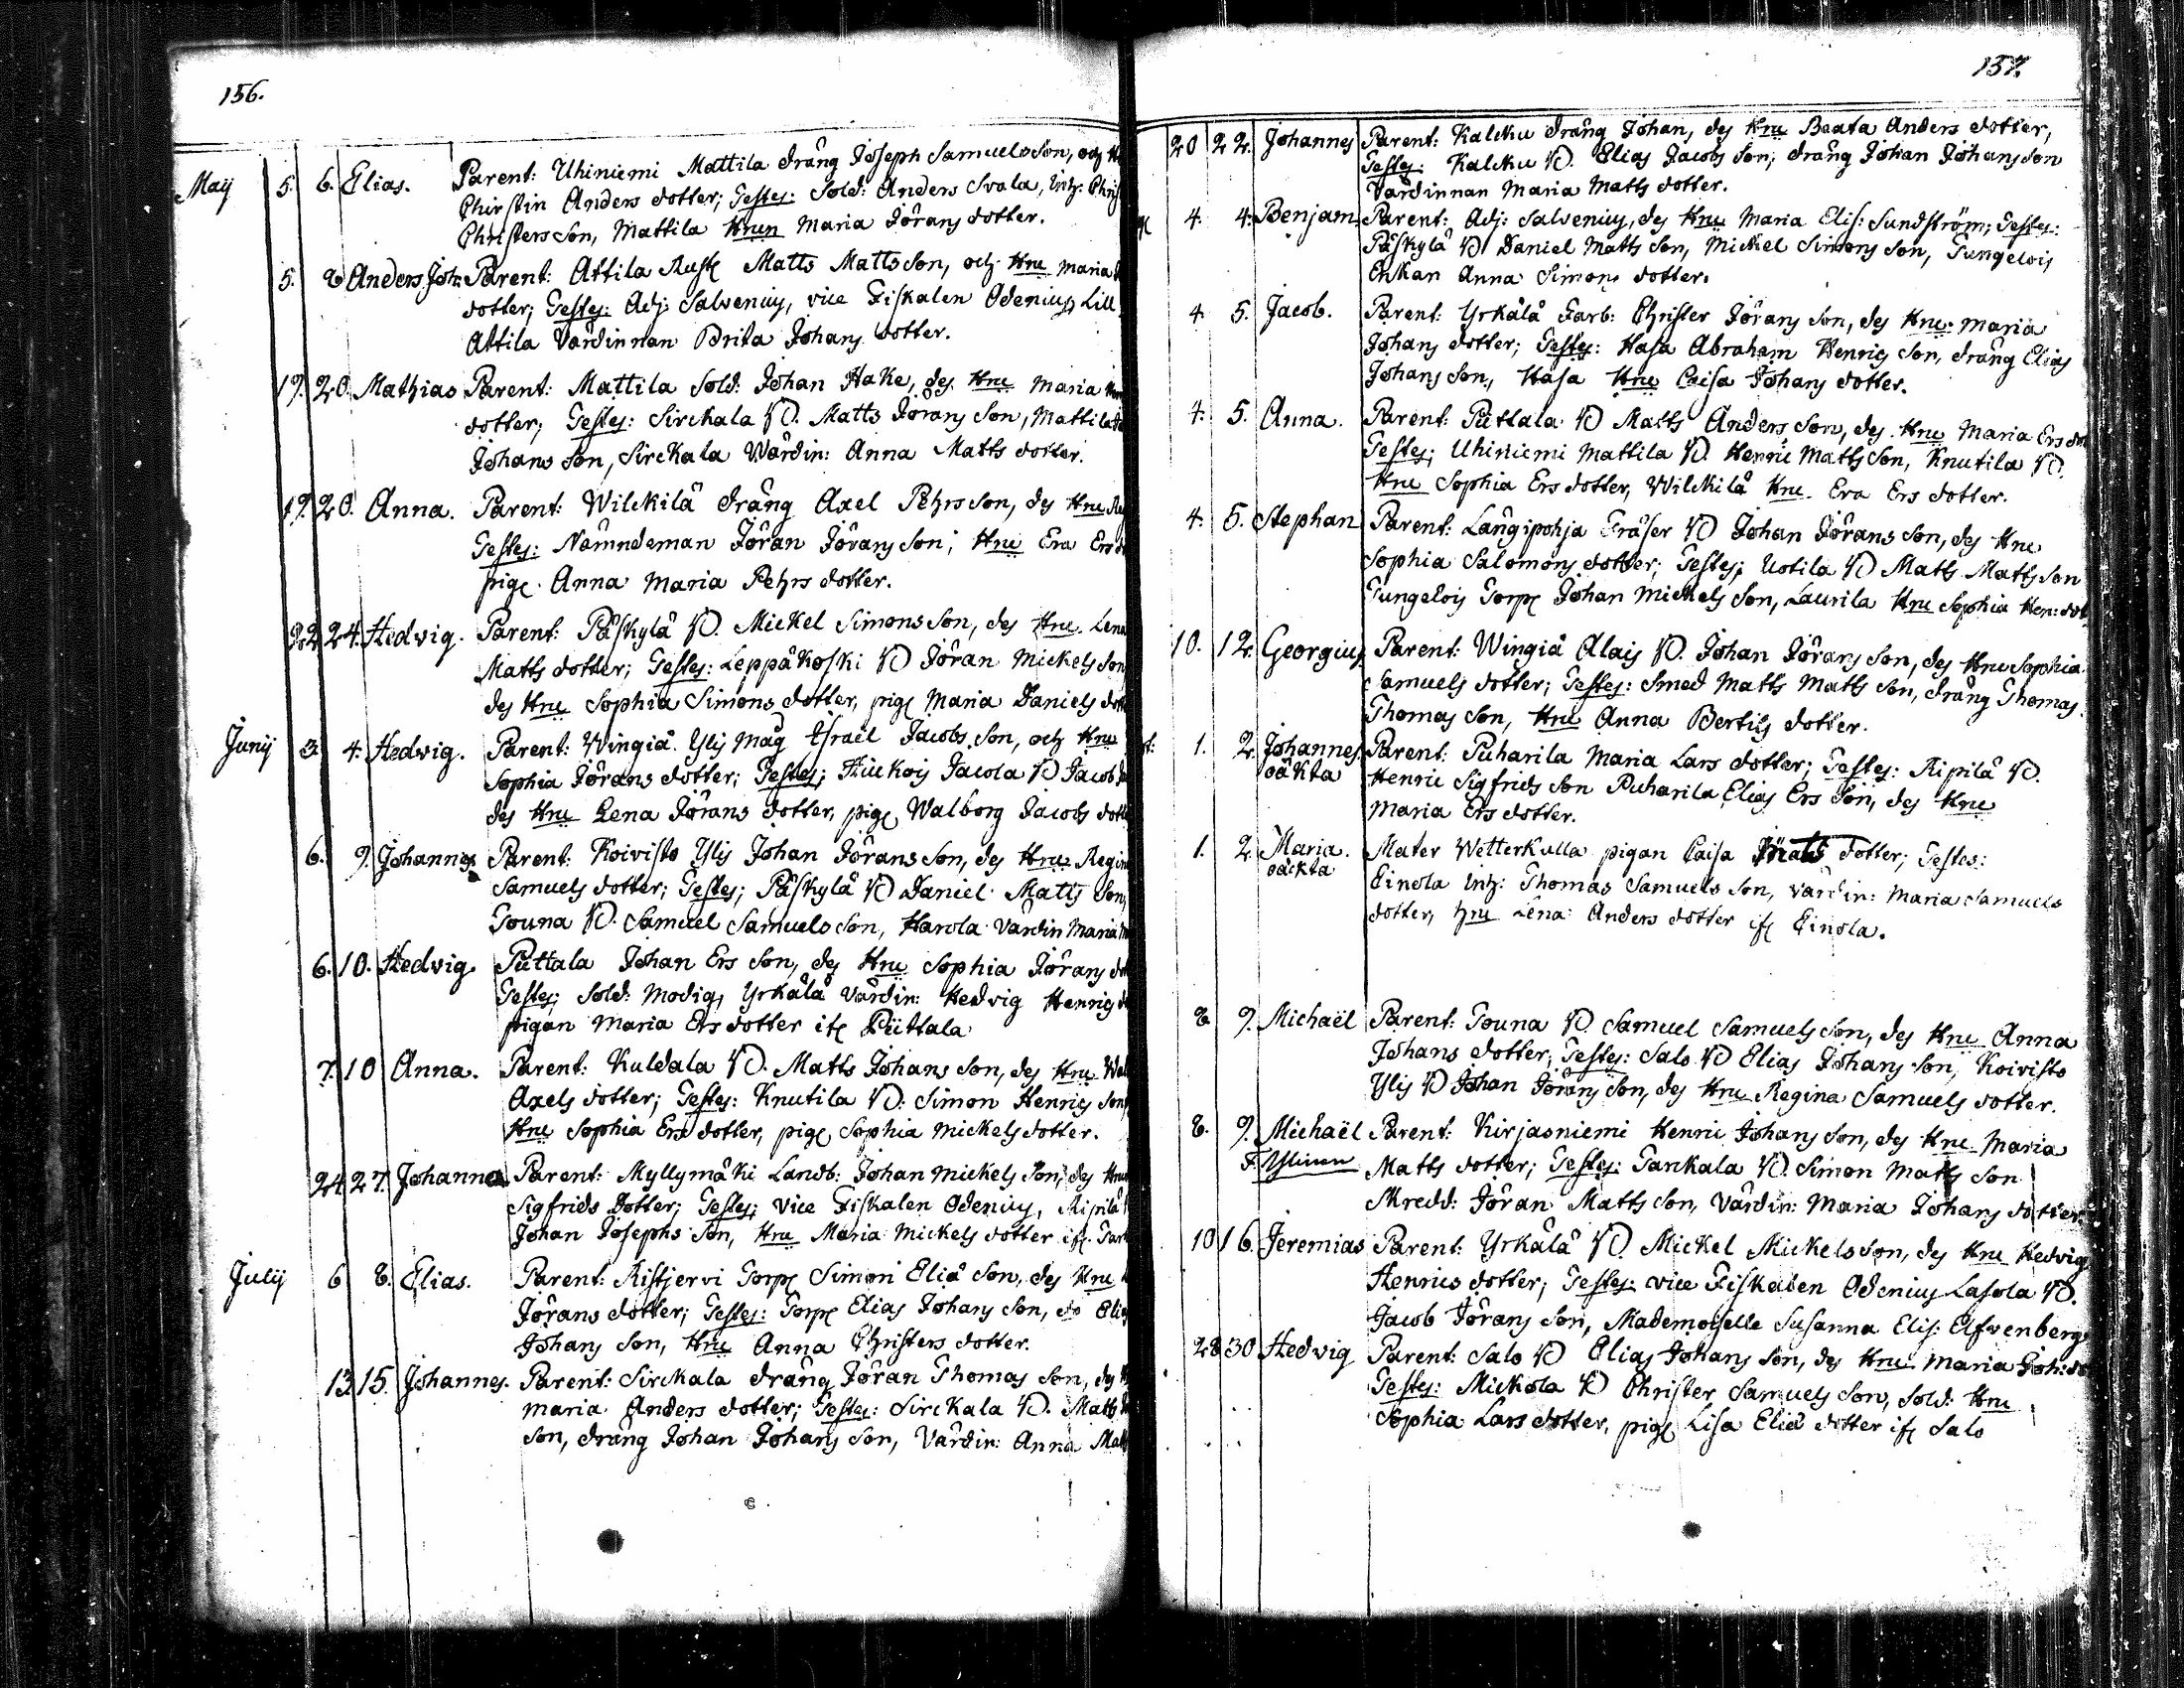 156.
Maij 5. 6. Elias. Parent: Uhiniemi Mattila dräng Joseph Samuelsson, och
Christin Anders dotter; Testes: Sold: Anders Svala, Inh:
Christers son, Mattila Hrun Maria Jörans dotter.
5. 8 Anders Joh: Parent: Attila Rust Matts Matts son, och Hru Maria
dotter; Testes: Adj: Salvenius, vice Fiskalen Odenius, Lill
Attila Värdinnan Brita Johans dotter.
19. 20. Mathias Parent: Mattila Sold: Johan Hake, des Hru Maria
dotter; Testes: Sirckala VD. Matts Jörans son, Mattila
Johans son, Sirckala Wärdin: Anna Matts dotter.
19. 20. Anna. Parent: Wilckilä dräng Axel Pehrs son, des Hru
Testes: Nämndeman Jöran Jörans son; Hru Eva Ers
pig. Anna Maria Pehrs dotter.
22 24. Hedvig. Parent: Päskylä VD. Mickel Simons son, des Hru Lena
Matts dotter; Testes: Leppäkoski VD Jöran Mickels son
des Hru Sophia Simons dotter, pig. Maria Daniels
Junij 3 4. Hedvig. Parent: Wingiä Ylis Måg Israël Jacobs son, och Hru
Sophia Jörans dotter; Testes; Hiickois Jacola VD Jacob
des Hru Lena Jörans dotter, pig. Walborg Jacobs
6. 9. Johannes Parent: Koivisto Ylis Johan Jörans son, des Hru Regina
Samuels dotter; Testes; Päskylä VD Daniel Matts son,
Touna VD. Samuel Samuels son, Harola värdin Maria
6. 10. Hedvig. Püttala Johan Ers son, des Hru Sophia Jörans
Testes; Sold: Modig, Yrkälä värdin: Hedvig Henrics
pigan Maria Ers dotter it. Püttala
7. 10 Anna. Parent: Kuldala VD. Matts Johans son, des Hru
Axels dotter; Testes: Knutila VD. Simon Henrics son
Hru Sophia Ers dotter, pig. Sophia Mickels dotter.
24 27. Johannes Parent: Myllymäki Landb: Johan Mickels son, des Hru
Sigfrids Dotter; Testes; vice Fiskalen Odenius, Ripilä
Johan Josephs son, Hru Maria Mickels dotter if.
Julij 6 8. Elias. Parent: Ristjervi Torp. Simon Eliä son, des Hru
Jörans dotter; Testes: Torp. Elias Johans son, do
Johans son, Hru Anna Christers dotter.
13 15. Johannes. Parent: Sirckala dräng Jöran Thomas son, des
Maria Anders dotter; Testes: Sirckala VD. Matts
son, dräng Johan Johans son, Värdin: Anna
157.
20 22. Johannes Parent: Kalcku dräng Johan, des Hru Beata Anders dotter,
Testes: Kalcku VD. Elias Jacobs son, dräng Johan Johans son
Värdinnan Maria Matts dotter.
4. 4. Benjam. Parent: Adj: Salvenius, des Hru Maria Elis: Sundström; Testes:
Päskylä VD Daniel Matts son, Mickel Simons son, Tungelois
Enkan Anna Simons dotter.
4. 5. Jacob. Parent: Yrkälä Farb: Christer Jörans son, des Hru Maria
Johans dotter; Testes: Hasa Abraham Henrics son, dräng Elias
Johans son, Hasa Hru Caisa Johans dotter.
4. 5. Anna. Parent: Püttala VD Matts Anders son, des Hru Maria Ers
Testes; Uhiniemi Mattila VD. Henric Matts son, Knutila VD.
Hru Sophia Ers dotter, Wilckilä Hru Eva Ers dotter.
4. 5. Stephan Parent: Långipohja Fräser VD Johan Jörans son, des Hru
Sophia Salomons dotter; Testes; Uotila VD Matts Matts son
Tungelois Torp. Johan Mickels son, Laurila Hru Sophia Hen:
10. 12. Georgius Parent: Wingiä Alais VD. Johan Jörans son, des Hru Sophia
Samuels dotter; Testes: Smed Matts Matts son, dräng Thomas
Thomas son, Hru Anna Bertils dotter.
1. 2. Johannes. oäkta Parent: Puharila Maria Lars dotter; Testes: Ripilä VD.
Henric Sigfrids son Puharila Elias Ers son, des Hru
Maria Ers dotter.
1. 2. Maria. oäckta Mater Wetterkulla pigan Caisa dotter; Testes:
Einola Inh: Thomas Samuels son, värdin: Maria Samuels
dotter, hru Lena Anders dotter if. Einola.
8 9. Michaël Parent: Touna VD. Samuel Samuels son, des Hru Anna
Johans dotter; Testes: Salo VD Elias Johans son, Koivisto
Ylis VD Johan Jörans son, des Hru Regina Samuels dotter.
8. 9. Michaël Parent: Kirjasniemi Henric Johans son, des Hru Maria
Matts dotter; Testes: Tanckala VD. Simon Matts son
Skredd: Jöran Matts son, Värdin: Maria Johans dotter
10 16. Jeremias Parent: Yrkälä VD. Mickel Mickels son, des Hru Hedvig
Henrics dotter; Testes: vice Fiskalen Odenius Lasola VD.
Jacob Jörans son, Mademoiselle Susanna Elis: Elfvenberg
28 30 Hedvig Parent: Salo VD Elias Johans son, des Hru Maria Joh:
Testes: Mickola VD Christer Samuels son, Sold: Hru
Sophia Lars dotter, pig. Lisa Eliä dotter if. Salo